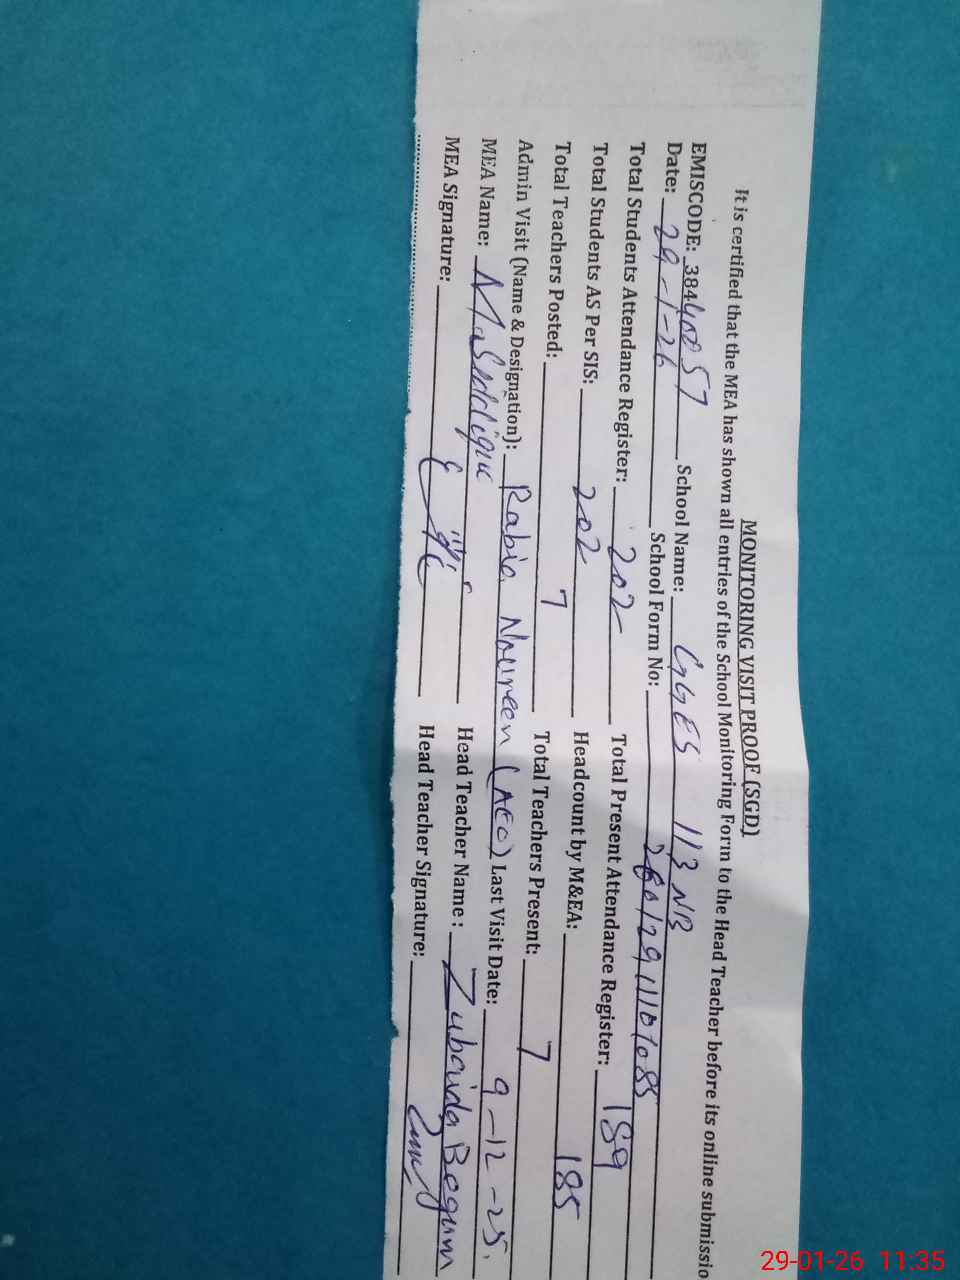 MONITORING VISIT PROOF (SGD)
It is certified that the MEA has shown all entries of the School Monitoring Form to the Head Teacher before its online submissio
EMISCODE: 38440057 School Name: GGES 113 NB
Date: 29-1-26 School Form No:
Total Students Attendance Register: 202 Total Present Attendance Register: 189
Total Students AS Per SIS: 202 Headcount by M&EA: 185
Total Teachers Posted: 7 Total Teachers Present: 7
Admin Visit (Name & Designation): Rabia Noureen (AEO) Last Visit Date: 9-12-25.
MEA Name: M. Siddique Head Teacher Name : Zubaida Begum
MEA Signature: Head Teacher Signature:
29-01-26 11:35